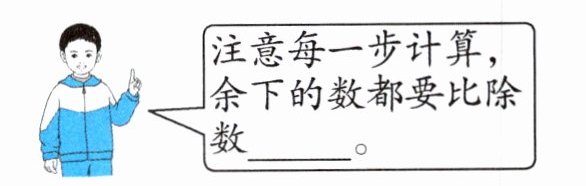 注意每一步计算，
余下的数都要比除
数______。